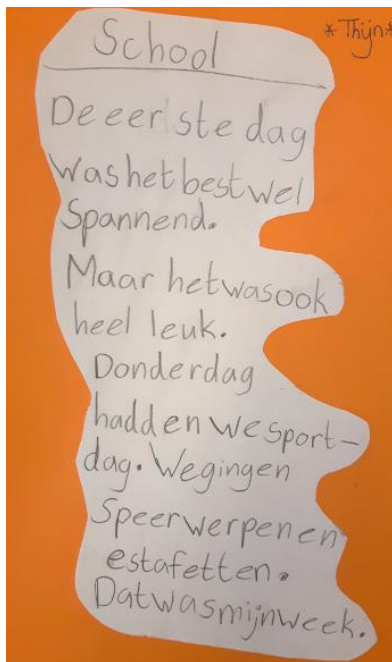 School
*Thijn*
De eerste dag
Was het best wel
Spannend.
Maar het was ook
heel leuk.
Donderdag
hadden we sport-
dag. We gingen
Speerwerpen en
estafetten.
Dat was mijn week.